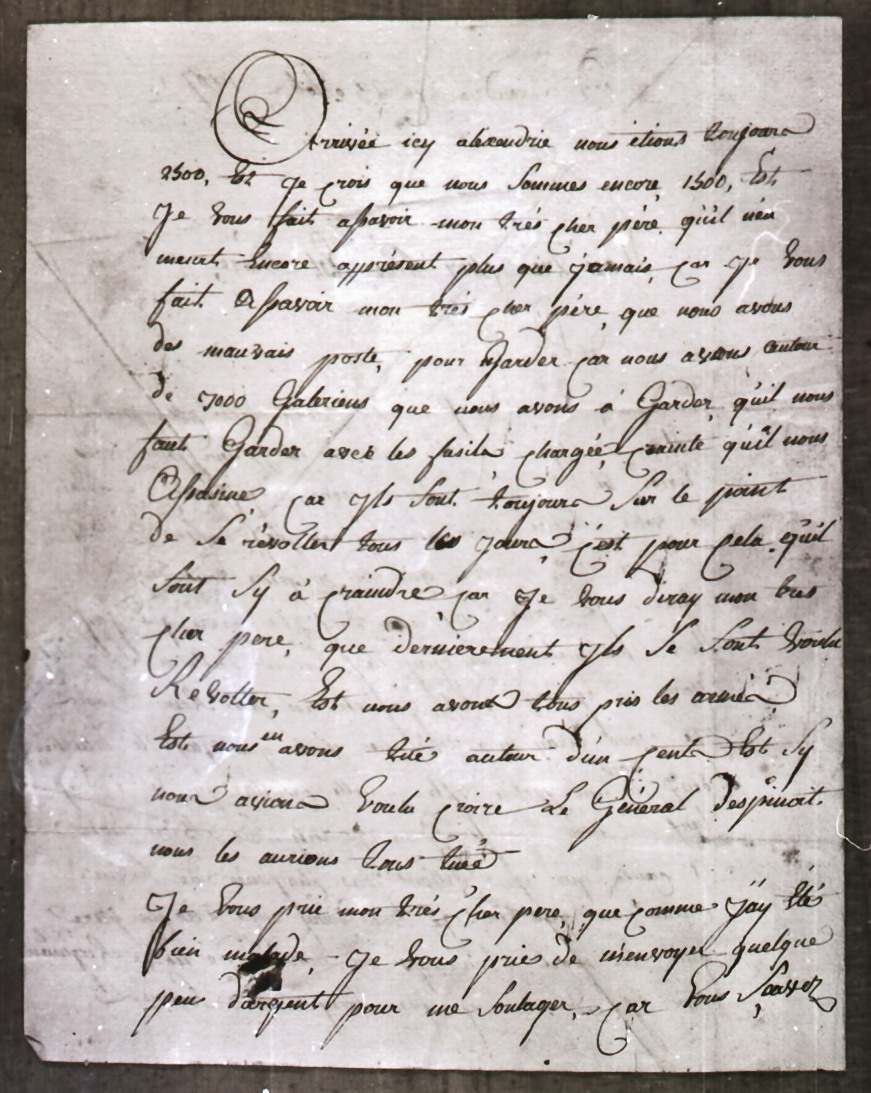 Arrivée icy alexandrie nous étions toujours
2500, Est Je crois que nous sommes encore 1500, Est
Je vous fait assavoir mon trés cher pére qu'il n'en
meurt Encore apprésent plus que jamais, car Je vous
fait Assavoir mon trés cher pére, que nous avons
des mauvais poste, pour Garder car nous avons autour
de 7000 Galeriens que nous avons á Garder qu'il nous
faut Garder avec les fusils chargée, crainte qu'il nous
Assasine car ils sont toujours sur le point
de se révolter tous les jours c'est pour cela qu'il
sont sy á craindre car Je vous diray mon tres
cher pere, que dernierement ils se sont voulu
Revolter, Est nous avont tous pris les armé
Est nous en avons tué autour d'un cent Est sy
nous avions voulu croire Le Général despinoit
nous les aurions tous tuée
Je vous prie mon trés cher pere, que comme j'ay été
bien malade, Je vous prie de m'envoyer quelque
peu d'argent pour me soulager, car vous scavez